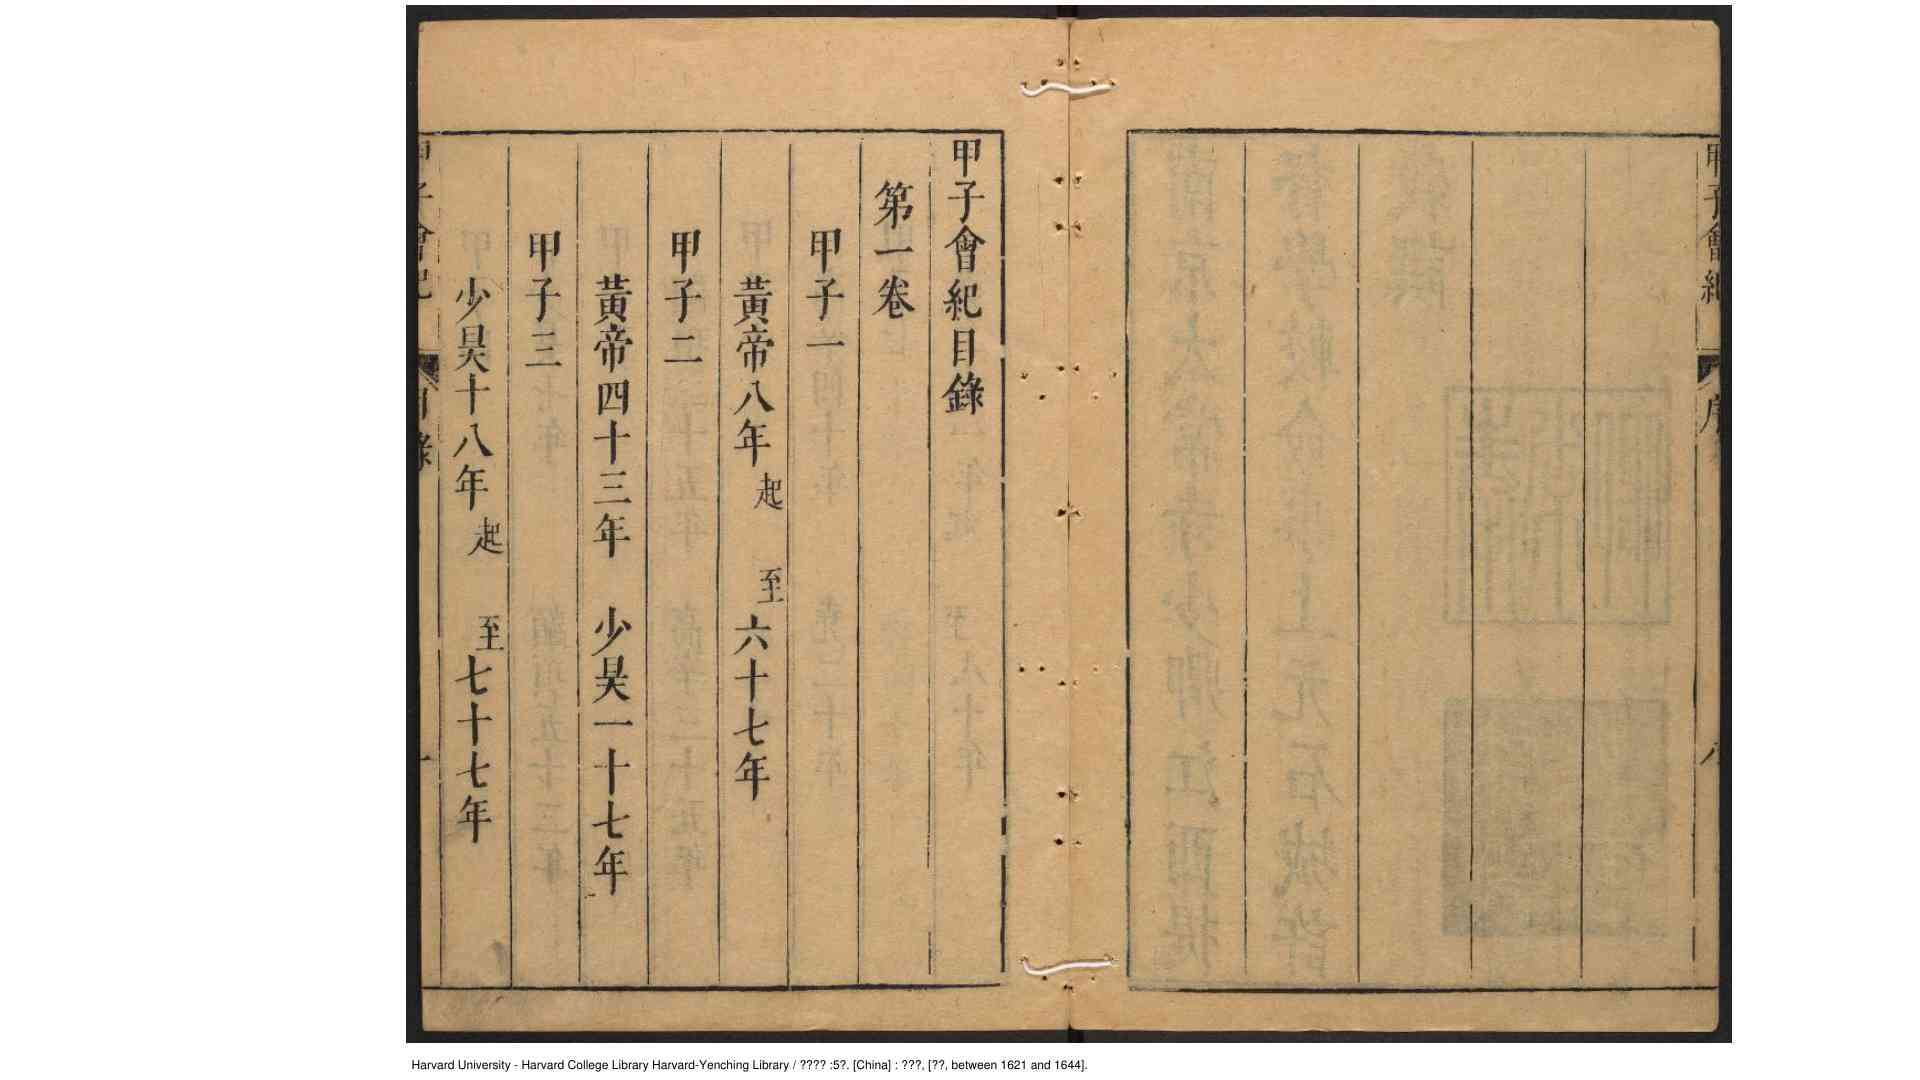 甲子會紀
序
八
甲子會紀目錄
第一卷
甲子一
黃帝八年起 至六十七年
甲子二
黃帝四十三年 少昊一十七年
甲子三
少昊十八年起 至七十七年
甲子會紀 目錄 一
Harvard University - Harvard College Library Harvard-Yenching Library / ???? :5?. [China] : ???, [??, between 1621 and 1644].